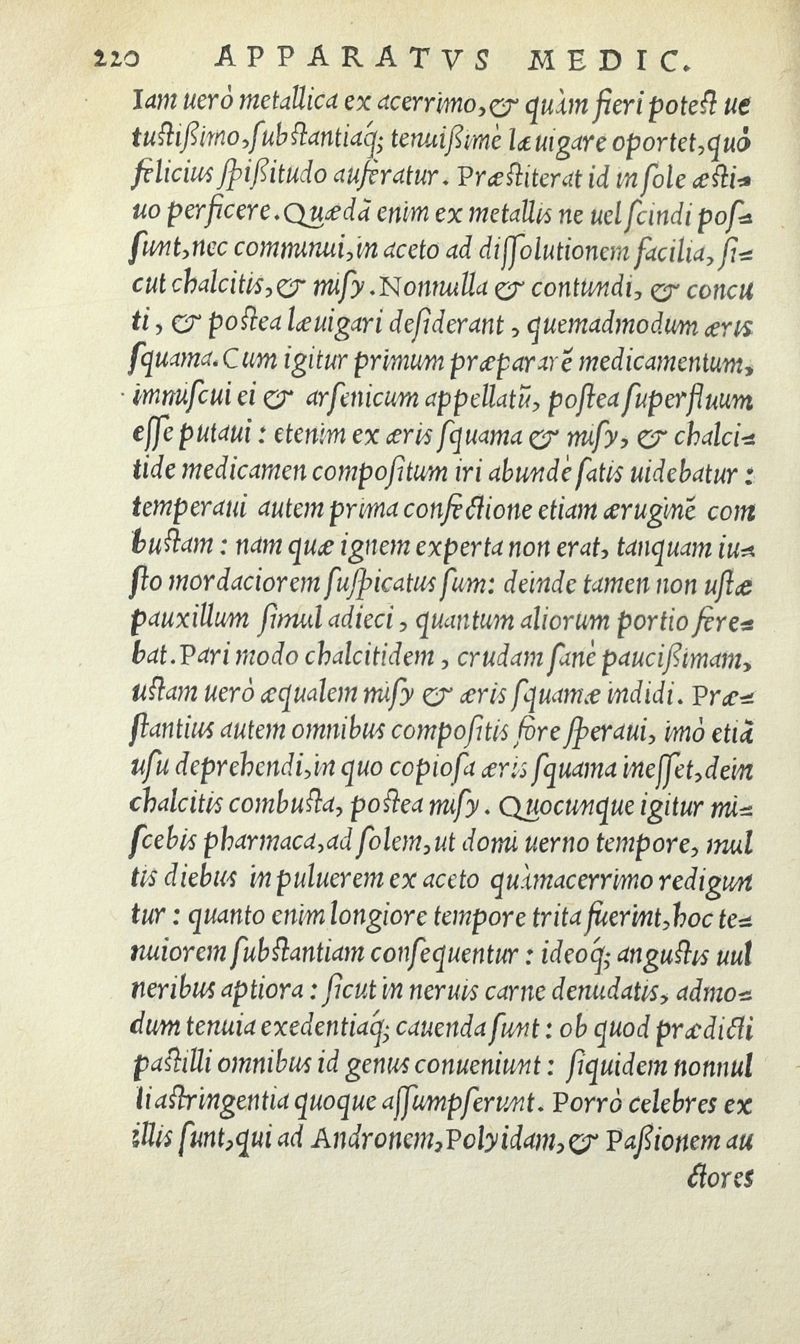 220 APPARATVS MEDIC.
Iam uerò metallica ex acerrimo, & quàm fieri potest ue
tustißimo, substantiaq́; tenuißimè læuigare oportet, quò
felicius spißitudo auferatur. Præstiterat id in sole æsti-
uo perficere. Quædā enim ex metallis ne uel scindi pos-
sunt, nec comminui, in aceto ad dissolutionem facilia, si-
cut chalcitis, & misy. Nonnulla & contundi, & concu
ti, & postea læuigari desiderant, quemadmodum æris
squama. Cum igitur primum præpararē medicamentum,
immiscui ei & arsenicum appellatū, postea superfluum
esse putaui: etenim ex æris squama & misy, & chalci-
tide medicamen compositum iri abundè satis uidebatur:
temperaui autem prima confectione etiam æruginē com
bustam: nam quæ ignem experta non erat, tanquam iu-
sto mordaciorem suspicatus sum: deinde tamen non ustæ
pauxillum simul adieci, quantum aliorum portio fere-
bat. Pari modo chalcitidem, crudam sanè paucißimam,
ustam uerò æqualem misy & æris squamæ indidi. Præ-
stantius autem omnibus compositis fore speraui, imò etiā
usu deprehendi, in quo copiosa æris squama inesset, dein
chalcitis combusta, postea misy. Quocunque igitur mi-
scebis pharmaca, ad solem, ut domi uerno tempore, mul
tis diebus in puluerem ex aceto quàm acerrimo redigun
tur: quanto enim longiore tempore trita fuerint, hoc te-
nuiorem substantiam consequentur: ideoq́; angustis uul
neribus aptiora: sicut in neruis carne denudatis, admo-
dum tenuia exedentiaq́; cauenda sunt: ob quod prædicti
pastilli omnibus id genus conueniunt: siquidem nonnul
li astringentia quoque assumpserunt. Porrò celebres ex
illis sunt, qui ad Andronem, Polyidam, & Paßionem au
ctores